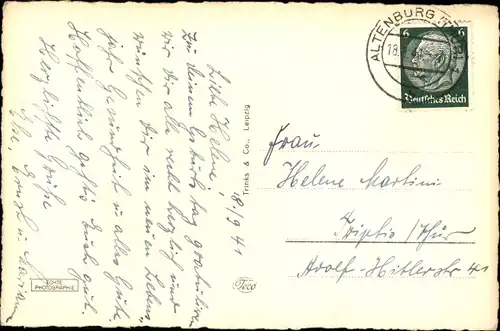 Liebe Helene,
18/9 41
Zu deinem Geburtstag gratulieren
wir Dir alle recht herzlich und
wünschen Dir im neuen Lebens
jahr Gesundheit u alles Gute.
Hoffentlich gehts Euch gut.
Herzlichste Grüße
Ernst u
Trinks & Co., Leipzig
ECHTE
PHOTOGRAPHIE
Teco
ALTENBURG
18.
6 6
Deutsches Reich
Frau
Helene Martini
Triptis / Thür
Adolf-Hitlerstr 41